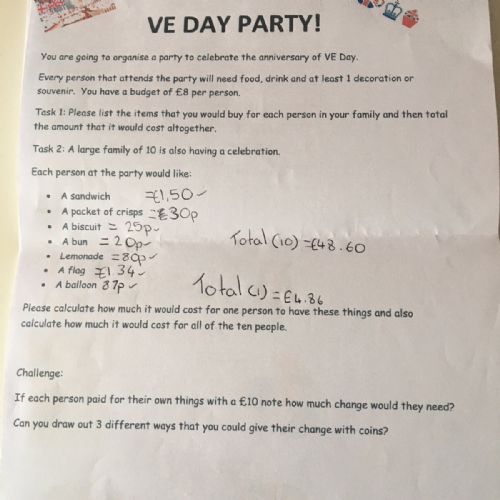 VE DAY PARTY!
You are going to organise a party to celebrate the anniversary of VE Day.
Every person that attends the party will need food, drink and at least 1 decoration or
souvenir. You have a budget of £8 per person.
Task 1: Please list the items that you would buy for each person in your family and then total
the amount that it would cost altogether.
Task 2: A large family of 10 is also having a celebration.
Each person at the party would like:
• A sandwich =£1,50✓
• A packet of crisps =£30p
• A biscuit = 25p✓
• A bun = 20p✓ Total (10) =£48.60
• Lemonade =80p✓
• A flag £1.34✓
• A balloon 87p✓ Total (1) =£4.86
Please calculate how much it would cost for one person to have these things and also
calculate how much it would cost for all of the ten people.
Challenge:
If each person paid for their own things with a £10 note how much change would they need?
Can you draw out 3 different ways that you could give their change with coins?